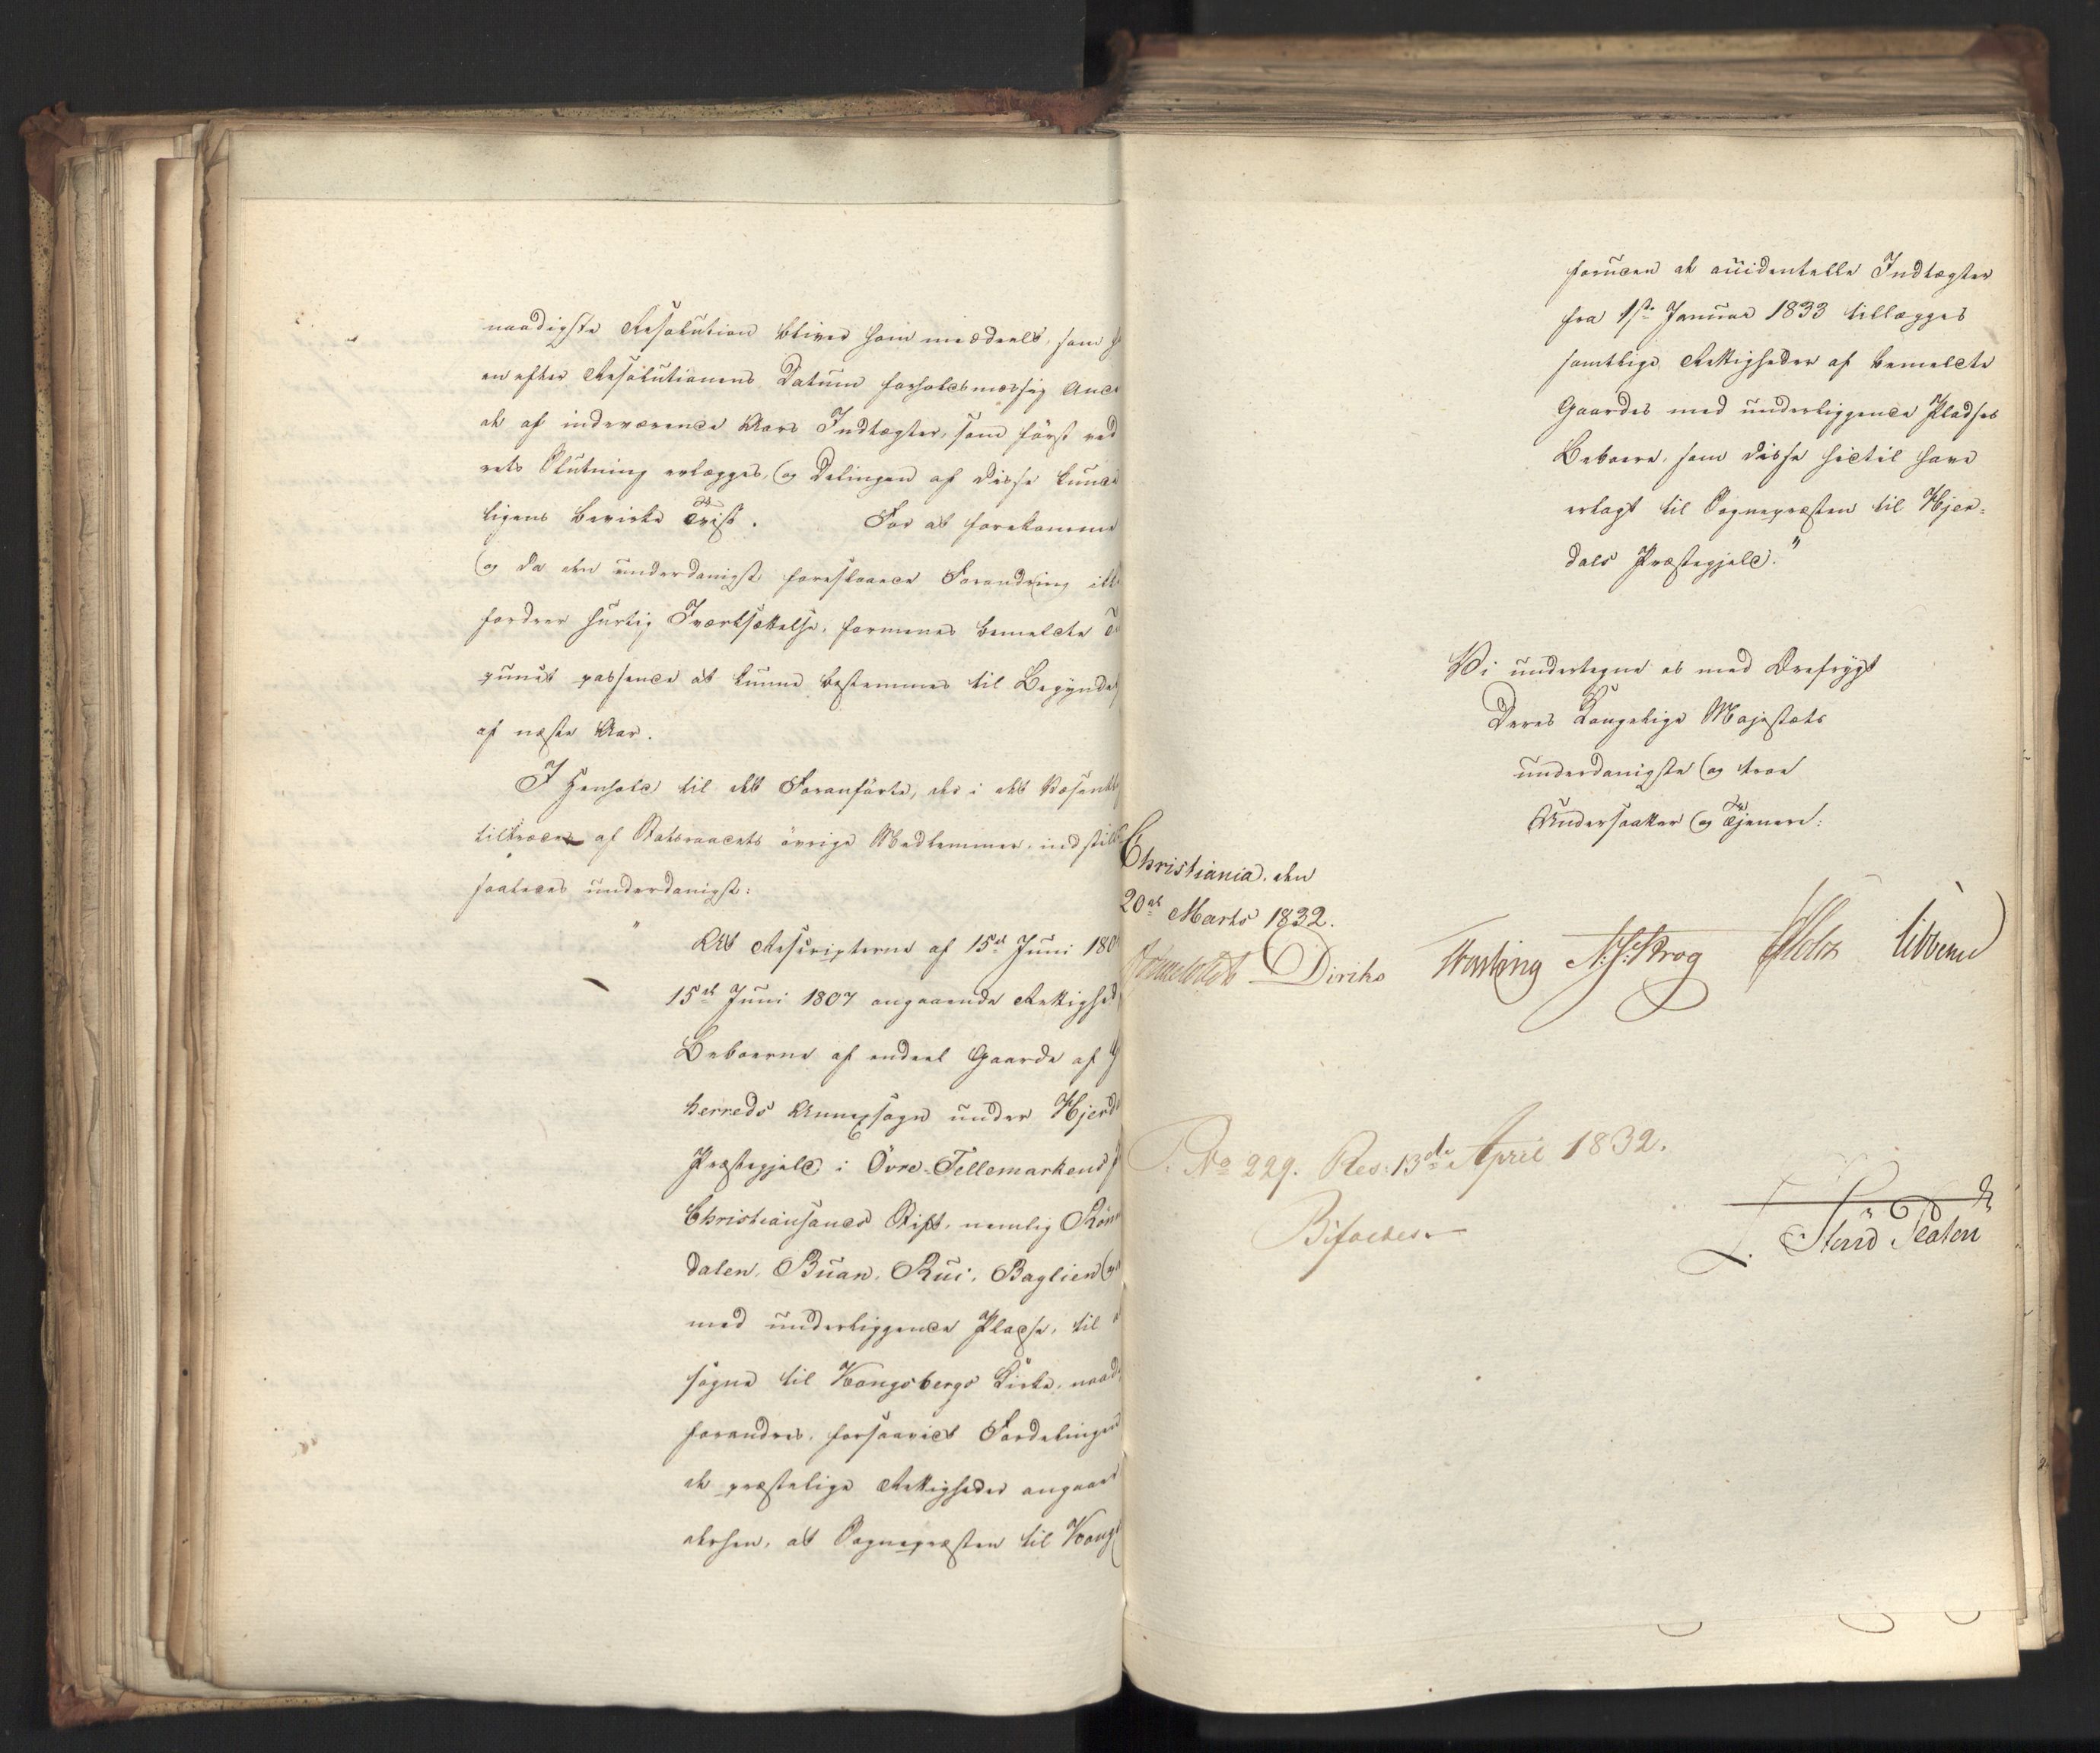 naadigste Resolution bliver ham meddeelt, som
en efter Resolutionens Datum forholdsmæssig
af indeværende Aars Indtægter, som først ved
rets Slutning erlægges, og Delingen af disse kunde
ligens bevirke Tvist. For at forekomme
og da den underdanigst foreslaaede Forandring
fordrer hurtig Iværksættelse, formenes bemeldte
punct passende at kunne bestemmes til
af næste Aar.
I Henhold til det Foranførte, der i det
tiltrædes af Statsraadets øvrige Medlemmer,
saaledes underdanigst:
"At Rescripterne af 15de Juni
15de Juni 1807 angaaende
Beboerne af endeel Gaarde af
herreds Annexsogn under
Præstegjeld i Övre-Tellemarkens
Christiansands Stift, nemlig
dalen, Buan, Rui, Baglien og
med underliggende Pladse, til
søgne til Kongsbergs Kirke,
forandres, forsaavidt Fordelingen
de præstelige Rettigheder
derhen, at Sognepræsten til
foruden de accidentelle Indtægter
fra 1ste Januar 1833 tillægges
samtlige Rettigheder af bemeldte
Gaardes med underliggende Pladses
Beboere, som disse hidtil have
erlagt til Sognepræsten til Hjer-
dals Præstegjeld."
Vi undertegne os med Ærefrygt
Deres Kongelige Majestæts
underdanigste og troe
Undersaatter og Tjenere:
Christiania, den
20de Marts 1832.
Diriks N. J. Krog Holst
No 229. Res: 13de April 1832.
Bifaldes.